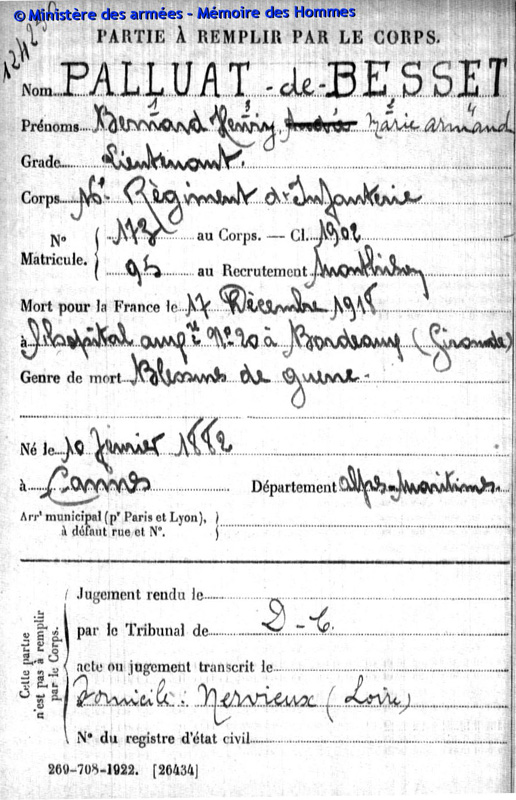 © Ministère des armées - Mémoire des Hommes
PARTIE À REMPLIR PAR LE CORPS.
Nom PALLUAT-de-BESSET
1 3 2 4
Prénoms Bernard Henry André Marie Armand
Grade Lieutenant.
Corps 16e Régiment d'Infanterie
N° Matricule. { 173 au Corps. — Cl. 1902
95 au Recrutement Montbrison
Mort pour la France le 17 Décembre 1918
à l'hôpital comp.re N° 20 à Bordeaux (Gironde)
Genre de mort Blessures de guerre.
Né le 10 Février 1882
à Cannes Département Alpes-Maritimes
Arrt municipal (pr Paris et Lyon),
à défaut rue et N°.
Cette partie
n'est pas à remplir
par le Corps.
Jugement rendu le
par le Tribunal de D-C.
acte ou jugement transcrit le
Domicile : Nervieux (Loire)
N° du registre d'état civil
269-708-1922. [26434]